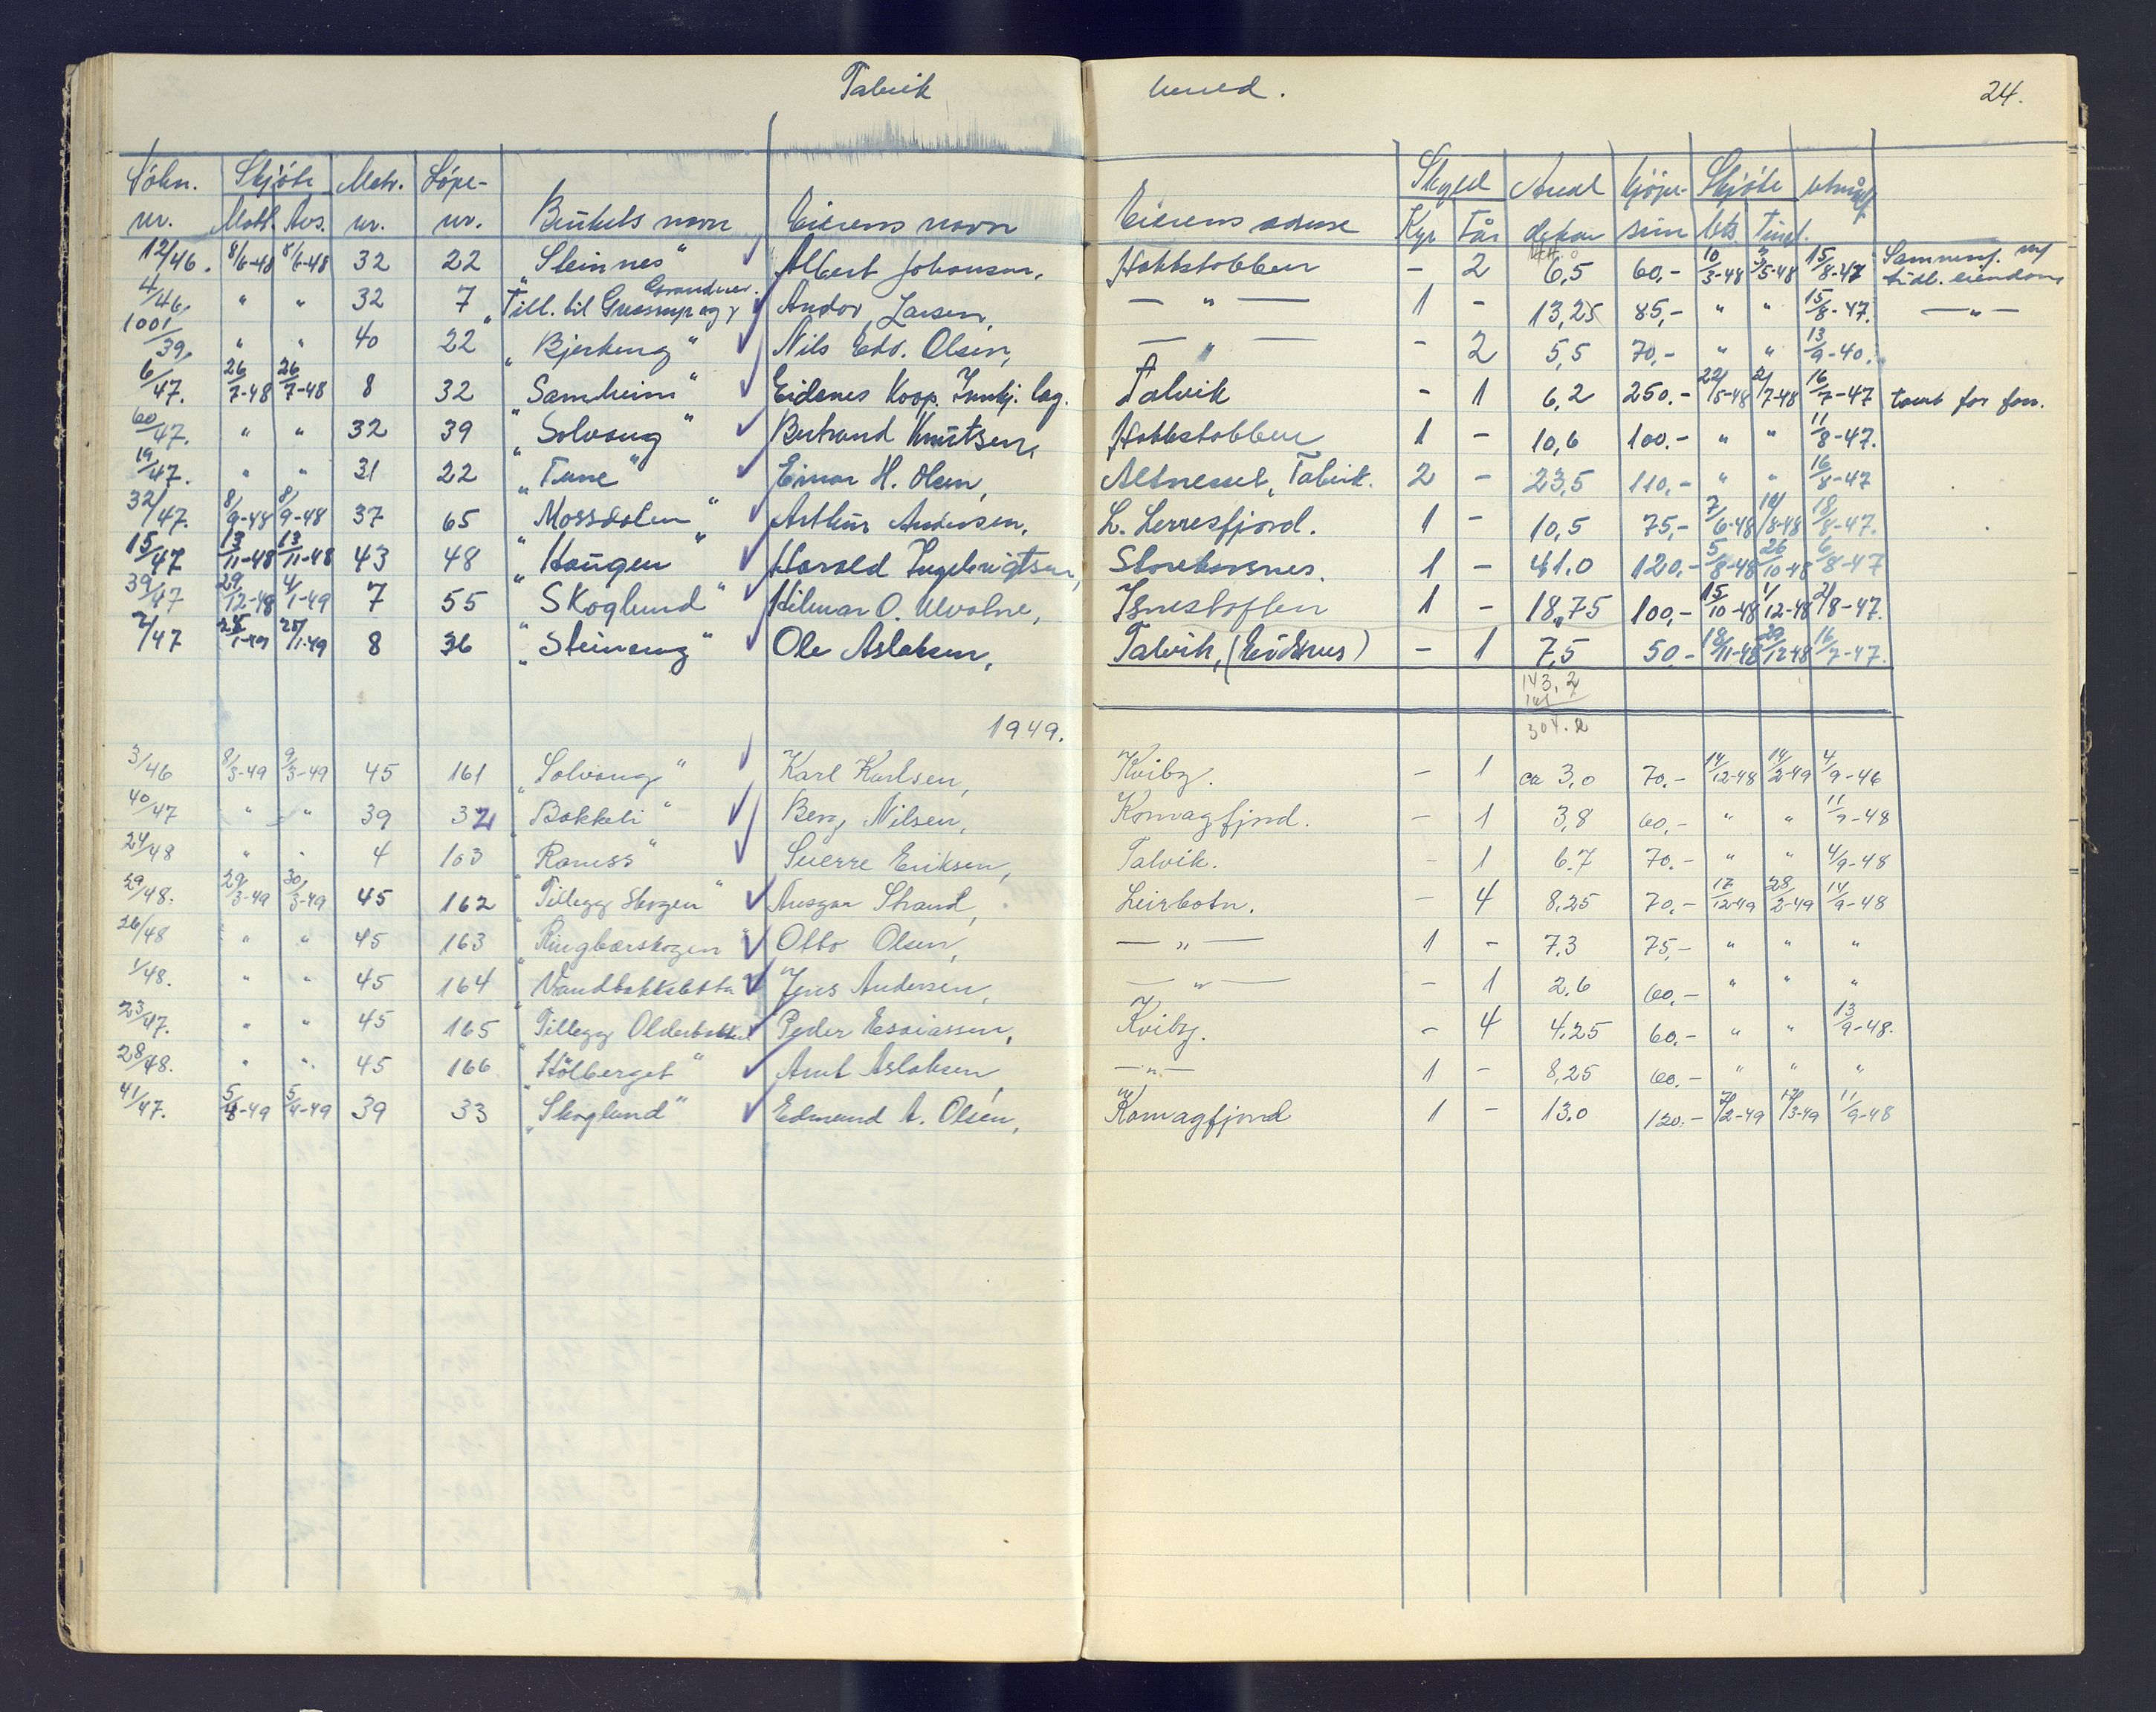 Talvik herred. 24.
Søkn. Skjöte Matr. Löpe- Skyld Areal kjöpe- Skjöte utmålt
nr. Mott. Avs. nr. nr. Brukets navn Eierens navn Eierens adresse Kyr Får dekar sum uts. Tingl.
12/46. 8/6-48 8/6-48 32 22 "Steinnes" Albert Johansen, Hakkstabben - 2 6,5 60,- 10/3-48 3/5-48 15/8-47 Sammenf. m/ tidl. eiendom
4/46, " " 32 7 "Till. til Grandnes. Andor Larsen, — " — 1 - 13,25 85,- " " 15/8-47. — " —
1001/39, " " 40 22 "Bjerkeng" Nils Edv. Olsen, — " — - 2 5,5 70,- " " 13/9-40.
6/47. 26/7-48 26/7-48 8 32 "Samheim" Eidsnes Koop. Innkj. lag. Talvik - 1 6,2 250.- 22/5-48 2/7-48 16/7-47 tomt for forr.
60/47. " " 32 39 "Solvang" Bertrand Knutsen, Hakkstabben 1 - 10,6 100.- " " 11/8-47.
19/47. " " 31 22 "Tune" Einar H. Olsen, Altnesset, Talvik. 2 - 23,5 110,- " " 16/8-47
32/47. 8/9-48 8/9-48 37 65 "Mossdalen" Arthur Andersen, L. Lerresfjord. 1 - 10,5 75,- 7/6-48 10/8-48 18/8-47.
15/47 13/11-48 13/11-48 43 48 "Haugen" Harald Ingebrigtsen, Storekorsnes. 1 - 41.0 120.- 5/8-48 26/10-48 6/8-47
39/47 29/12-48 4/1-49 7 55 "Skoglund" Hilmar O. Ulvolne, Isnestoften 1 - 18,75 100,- 15/10-48 1/12-48 2/8-47.
2/47 25/1-49 25/1-49 8 36 "Steineng" Ole Aslaksen, Talvik, (Eidsnes) - 1 7,5 50.- 18/11-48 29/12-48 16/7-47.
143,2
161
304.2
1949.
3/46 8/3-49 9/3-49 45 161 "Solvang" Karl Karlsen, Kviby. - 1 ca 3,0 70.- 14/12-48 14/2-49 4/9-46
40/47 " " 39 32 "Bakkeli" Berg Nilsen, Komagfjord. - 1 3,8 60,- " " 11/9-48
24/48 " " 4 103 "Ramss" Sverre Eriksen, Talvik. - 1 6.7 70.- " " 4/9-48
29/48. 29/3-49 30/3-49 45 162 "Tillegg Skogen" Ansgar Strand, Leirbotn. - 4 8,25 70,- 17/12-49 28/2-49 14/9-48
26/48 " " 45 163 "Ringbærskogen" Otto Olsen, — " — 1 - 7,3 75,- " " "
1/48. " " 45 164 "Vandbakksletta" Jens Andersen, — " — - 1 2,6 60,- " " "
23/47. " " 45 165 "Tillegg Olderbakken" Peder Esaiassen, Kviby. - 4 4,25 60,- " " 13/9-48.
28/48. " " 45 166 "Hölberget" Arnt Aslaksen, — " — 1 - 8,25 60.- " " "
41/47. 5/4-49 5/4-49 39 33 "Skoglund" Edmund A. Olsen, Komagfjord 1 - 13.0 120.- 7/2-49 17/3-49 11/9-48